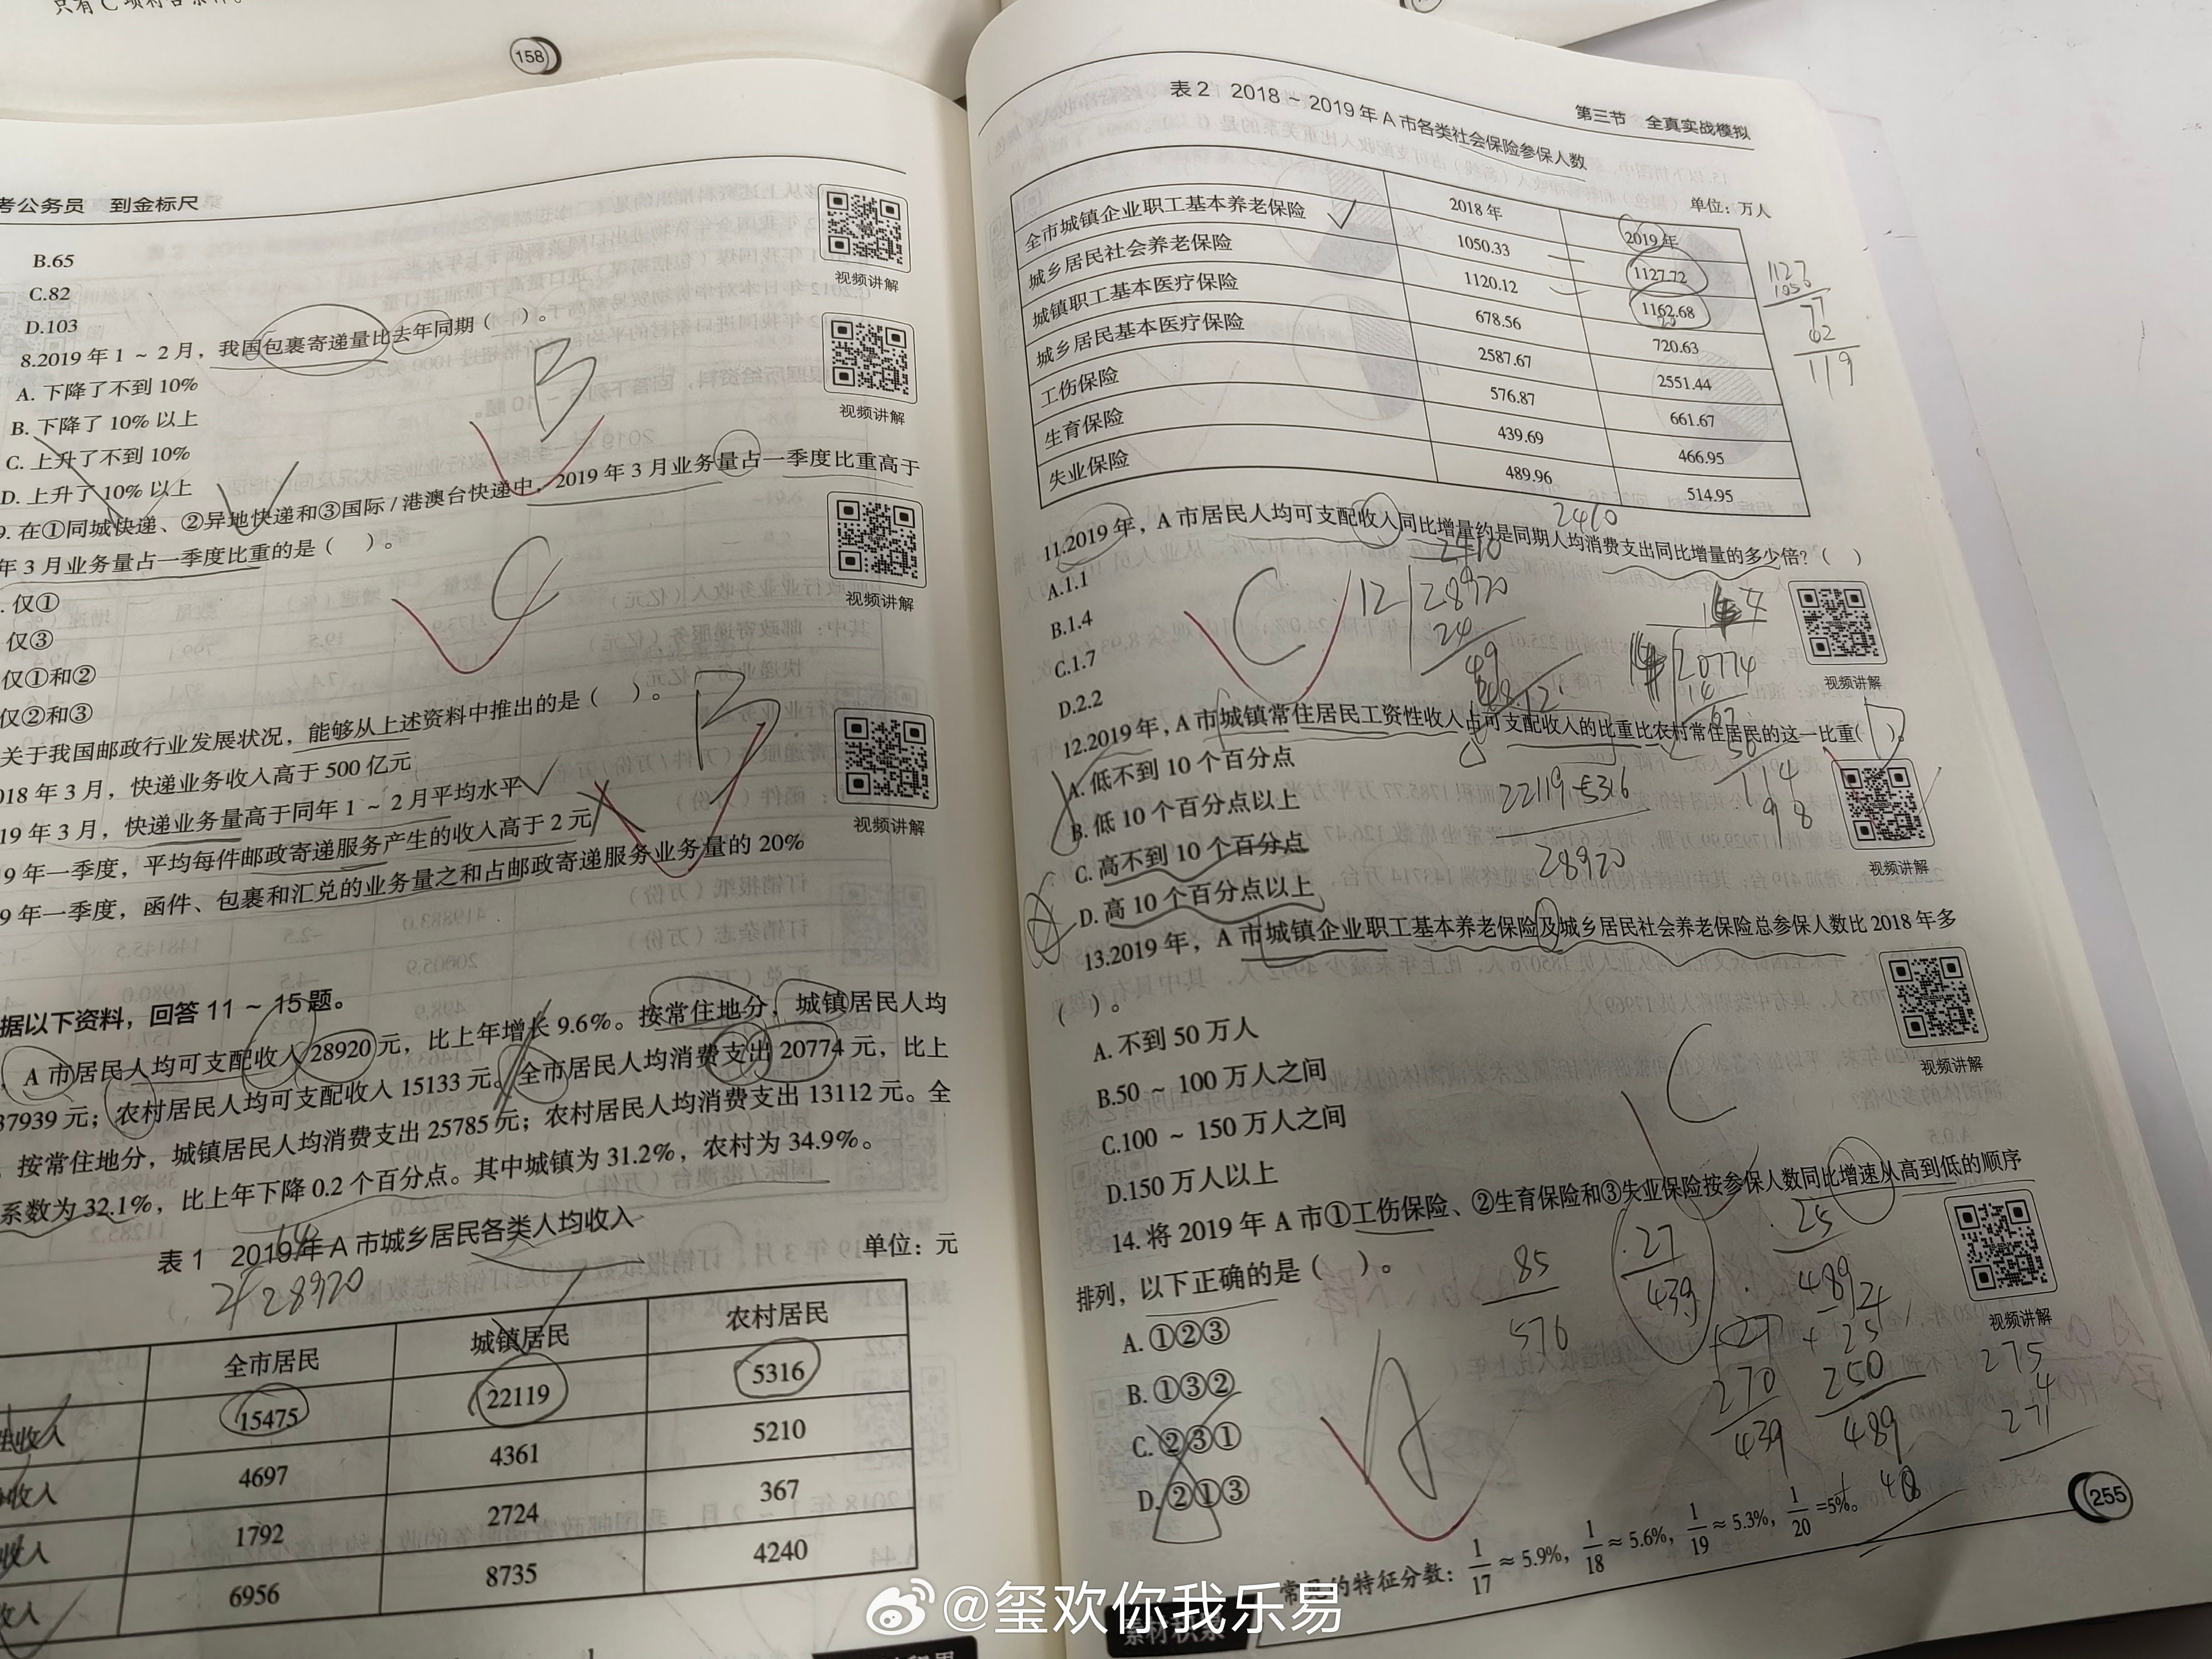 158
考公务员 到金标尺
B.65
C.82
D.103
8.2019年1～2月，我国包裹寄递量比去年同期（ ）。
A. 下降了不到10%
B. 下降了10%以上
C. 上升了不到10%
D. 上升了10%以上
B
9. 在①同城快递、②异地快递和③国际/港澳台快递中，2019年3月业务量占一季度比重高于
年3月业务量占一季度比重的是（ ）。
. 仅①
仅③
仅①和②
仅②和③
C
关于我国邮政行业发展状况，能够从上述资料中推出的是（ ）。
018年3月，快递业务收入高于500亿元
19年3月，快递业务量高于同年1～2月平均水平
9年一季度，平均每件邮政寄递服务产生的收入高于2元
9年一季度，函件、包裹和汇兑的业务量之和占邮政寄递服务业务量的20%
B
视频讲解
视频讲解
视频讲解
视频讲解
据以下资料，回答11～15题。
，A市居民人均可支配收入28920元，比上年增长9.6%。按常住地分，城镇居民人均
37939元；农村居民人均可支配收入15133元。全市居民人均消费支出20774元，比上
按常住地分，城镇居民人均消费支出25785元；农村居民人均消费支出13112元。全
系数为32.1%，比上年下降0.2个百分点。其中城镇为31.2%，农村为34.9%。
表1 2019年A市城乡居民各类人均收入
单位：元
28920
全市居民 城镇居民 农村居民
收入 15475 22119 5316
收入 4697 4361 5210
收入 1792 2724 367
收入 6956 8735 4240
第三节 全真实战模拟
表2 2018～2019年A市各类社会保险参保人数
单位：万人
2018年 2019年
全市城镇企业职工基本养老保险 1050.33 1127.72
城乡居民社会养老保险 1120.12 1162.68
城镇职工基本医疗保险 678.56 720.63
城乡居民基本医疗保险 2587.67 2551.44
工伤保险 576.87 661.67
生育保险 439.69 466.95
失业保险 489.96 514.95
1127
1050
77
119
11.2019年，A市居民人均可支配收入同比增量约是同期人均消费支出同比增量的多少倍？（ ）
A.1.1
B.1.4
C.1.7
D.2.2
C
2460
2410
12 28920
24
49
48
20774
14
114
98
视频讲解
12.2019年，A市城镇常住居民工资性收入占可支配收入的比重比农村常住居民的这一比重（ ）。
A. 低不到10个百分点
B. 低10个百分点以上
C. 高不到10个百分点
D. 高10个百分点以上
22119-5316
28920
视频讲解
13.2019年，A市城镇企业职工基本养老保险及城乡居民社会养老保险总参保人数比2018年多
（ ）。
A. 不到50万人
B.50～100万人之间
C.100～150万人之间
D.150万人以上
C
视频讲解
14. 将2019年A市①工伤保险、②生育保险和③失业保险按参保人数同比增速从高到低的顺序
排列，以下正确的是（ ）。
A. ①②③
B. ①③②
C. ②③①
D. ②①③
A
85
576
27
439
25
489
270
439
250
489
275
4
271
视频讲解
常见的特征分数：1/17≈5.9%，1/18≈5.6%，1/19≈5.3%，1/20=5%。
素材积累
255
@玺欢你我乐易